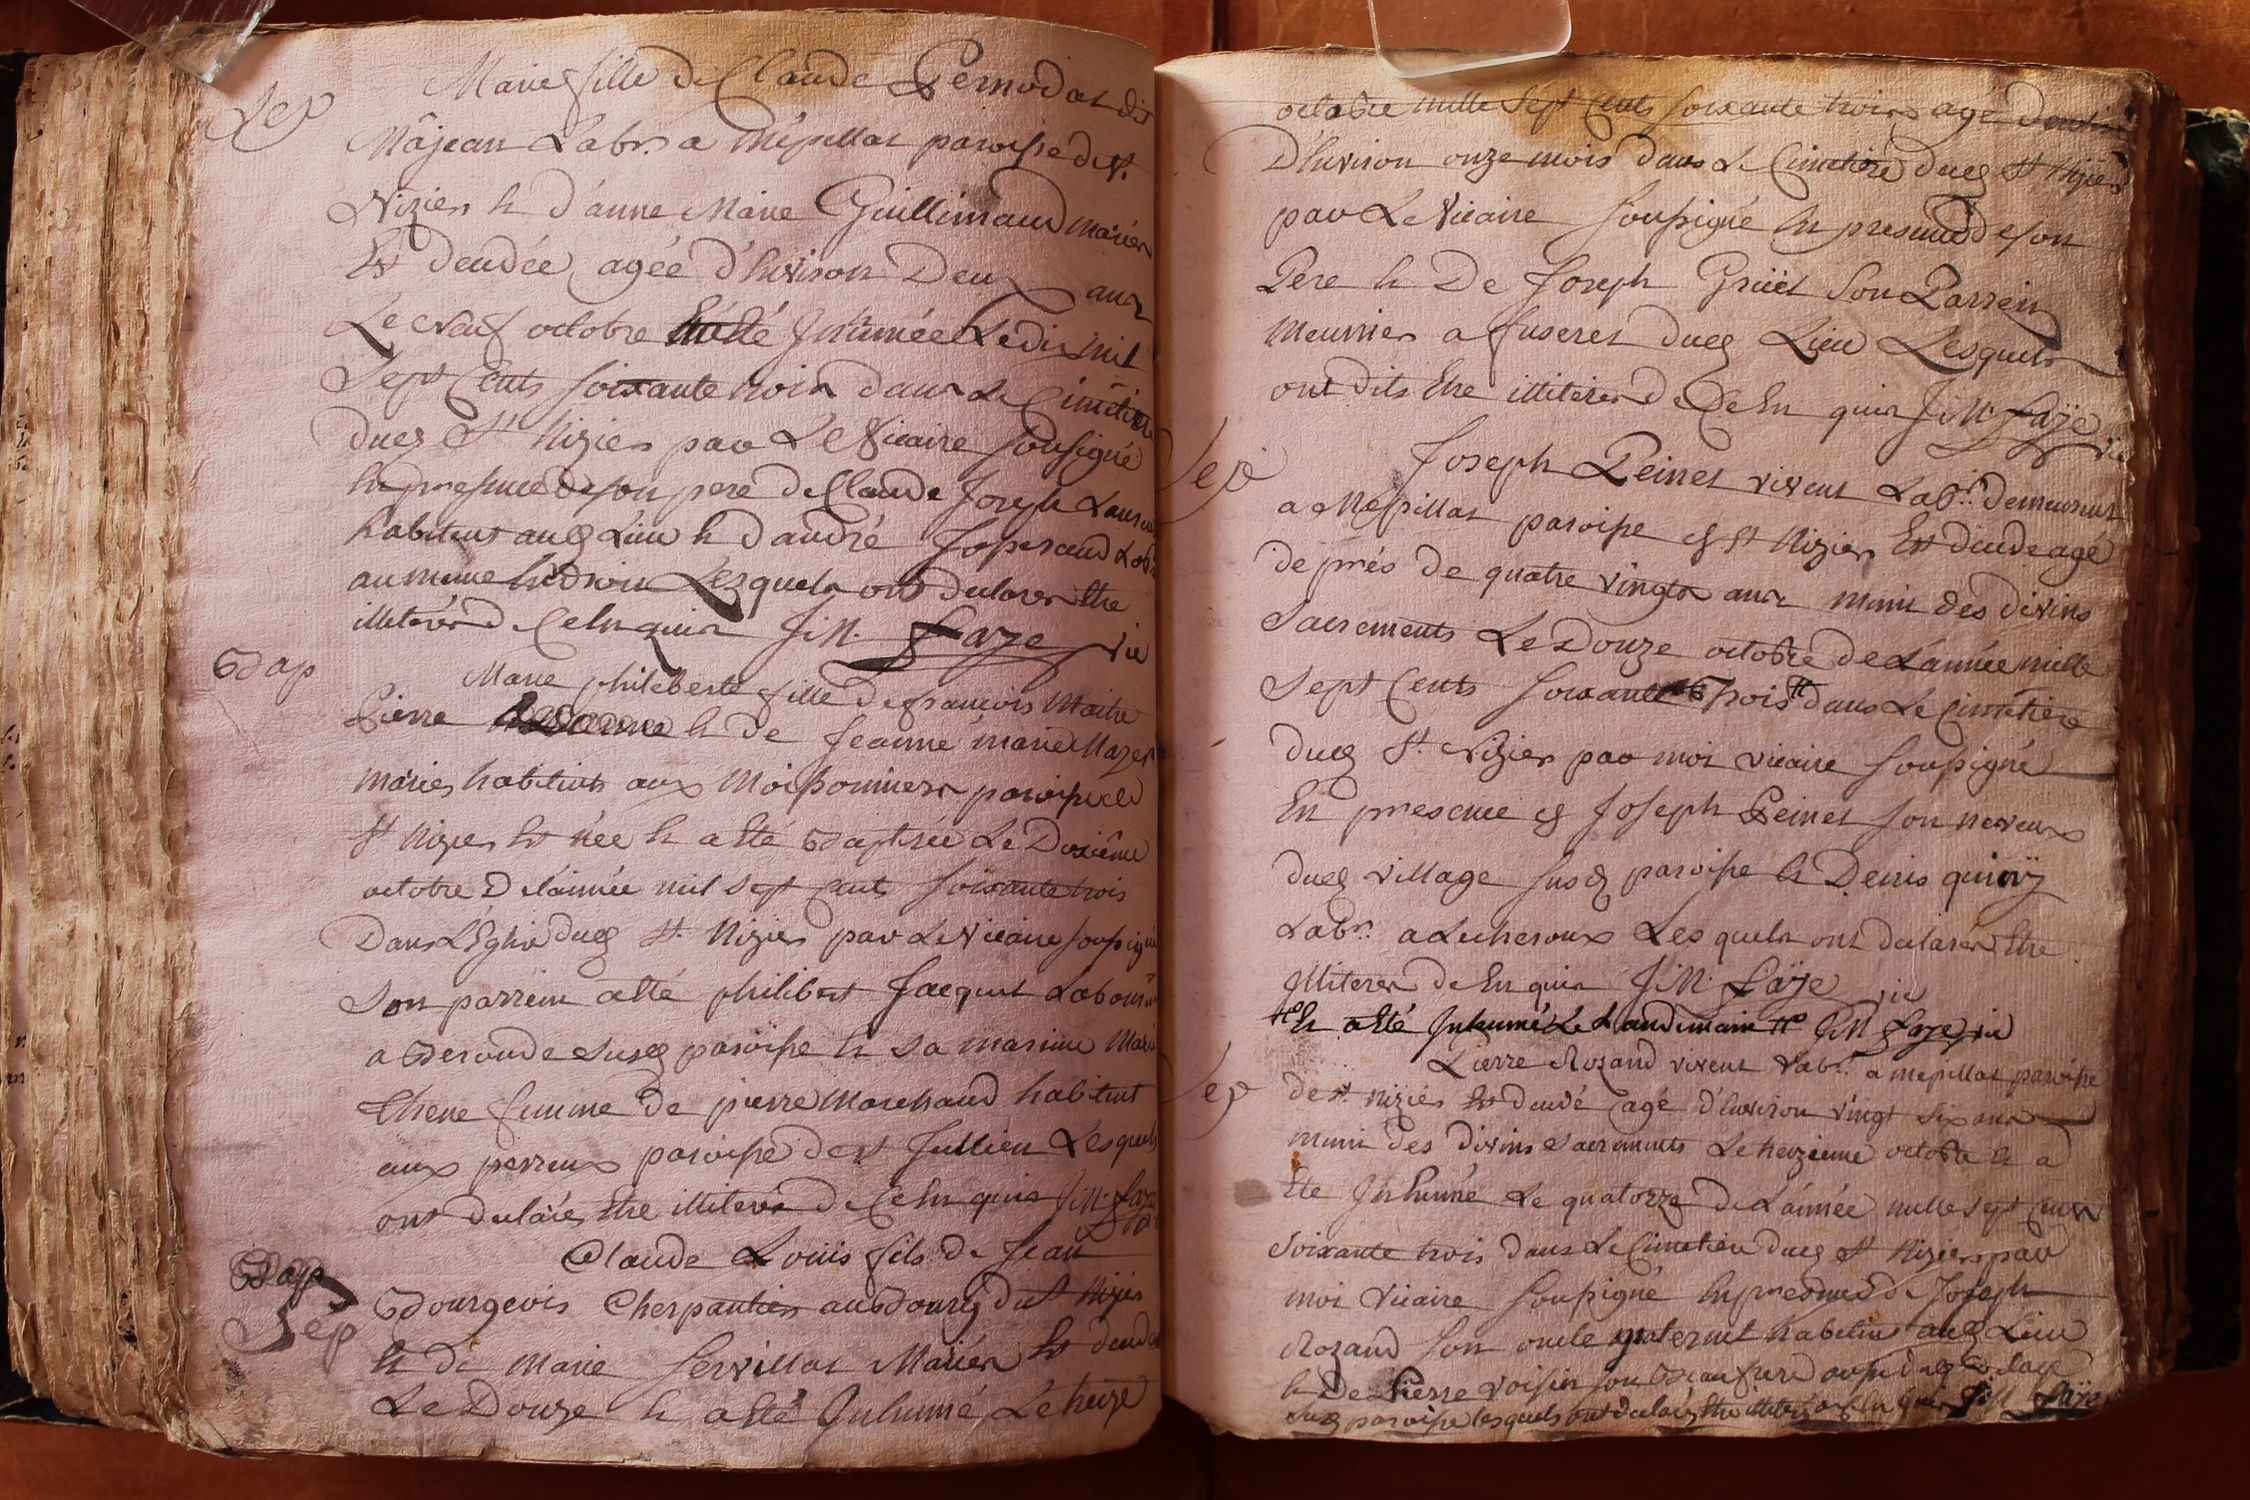 Sep
Marie fille de Claude Pernodat dit
Májean Labr. a Mépillat paroisse de st.
Nizier & d'anne Marie Guillimaud mariés
Est decedée agée d'environ Deux ans
Le neuf octobre a Eté Inhumée Le dix mil
Sept Cents soixante trois dans Le Cimetière
dud St Nizier par Le Vicaire soussigné
En presence de son pere de Claude Joseph
habitent aud Lieu & d'andré Josserand Labr
au meme Endroit Lesquels ont declarer Etre
illiterés de Ce Enquis J: M. Faye vic
Bap
Marie philiberte fille de francois Maitre
Pierre & de Jeanne marie Mazer
mariés habitents aux Moissonniers paroisse de
St Nizier Est née & a Eté Baptisée Le Dixiême
octobre De l'année mil sept Cents soixante trois
Dans L'Eglise dud St. Nizier par Le Vicaire soussigné
Son parrein a Eté philibert Jacquet Laboureur
a Beronde susd paroisse & sa marinne Marie
Chene femme de pierre Marchand habitent
aux perreux paroisse de st Jullien Lesquels
ont declarés Etre illiterés de Ce Enquis J: M. Faye
Bap
Sep
Claude Louis fils de Jean
Bourgeois Cherpantier au Bourg du St Nizier
& de Marie Servillat Mariés Est decedé
Le Douze & a Eté Inhumé Le treize
octobre mille Sept Cents soixante trois agé
D'Environ onze mois dans Le Cimetière dud St Nizier
par Le Vicaire soussigné En presence de son
Pere & De Joseph Gruët Son Parrein
Meunier a fuseret dud Lieu Lesquels
ont dits Etre illiterés de Ce Enquis J: M. Faÿe
vic
Sep
Joseph Peinet vivent Labr. demeurent
a Mépillat paroisse de St Nizier Est decedé agé
de prés de quatre vingts ans muni des divins
Sacrements Le Douze octobre de L'année mille
Sept Cents soixante Trois # dans Le Cimetière
dud St. Nizier par moi vicaire soussigné
En presence de Joseph Peinet son neveux
dud village susd paroisse & Denis quivy
Labr. a Lecheroux Lesquels ont declarés Etre
Illiterés de Enquis J: M: Faÿe vic
# & a Eté Inhumé Le Landemain # J: M Faye vic
Sep
Pierre Rozand vivent Labr. a mepillat paroisse
de st nizier Est decedé agé d'Environ vingt six ans
muni des divins Sacrements Le treizieme octobre & a
Ete Inhumé Le quatorze de L'année mille sept Cents
soixante trois dans Le Cimetiere dud St Nizier par
moi Vicaire soussigné En presence de Joseph
Rozand son oncle paternel habitent aud Lieu
& De Pierre voisin son Beaufrere aussi dud village
Susd paroisse lesquels ont declarés Etre illiterés de Ce Enquis J: M Faÿe